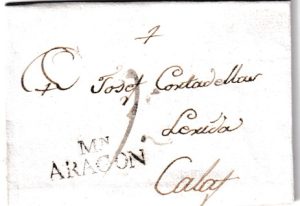 Josef Cortadellas
Lerida
Calaf
MN
ARAGON